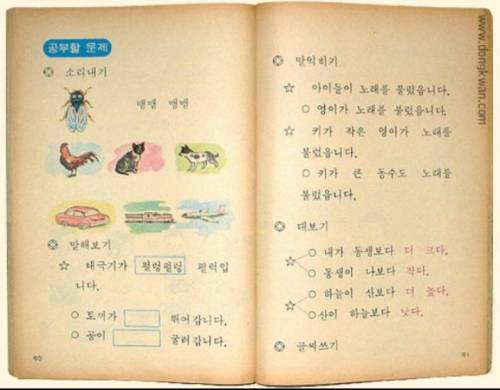 공부할 문제
소리내기
맴맴 맴맴
말해보기
☆ 태극기가 펄렁펄렁 펄럭입
니다.
○ 토끼가 뛰어갑니다.
○ 공이 굴러갑니다.
90
말익히기
☆ 아이들이 노래를 불렀읍니다.
○ 영이가 노래를 불렀읍니다.
☆ 키가 작은 영이가 노래를
불렀읍니다.
○ 키가 큰 동수도 노래를
불렀읍니다.
대보기
○ 내가 동생보다 더 크다.
☆
○ 동생이 나보다 작다.
○ 하늘이 산보다 더 높다.
☆
○ 산이 하늘보다 낮다.
글씨쓰기
91
www.dongkwan.com